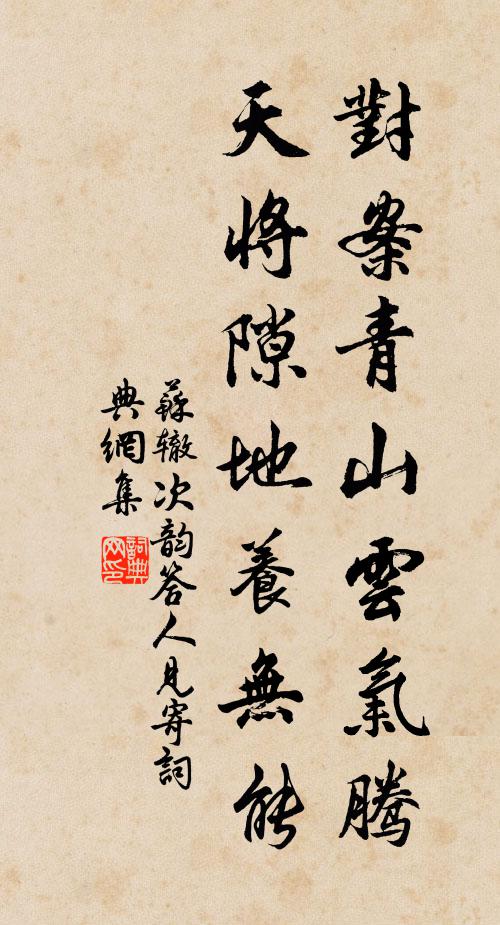 對案青山雲氣騰
天將隙地養無能
蘇轍次韵答人見寄詞
典網集
詞典網印